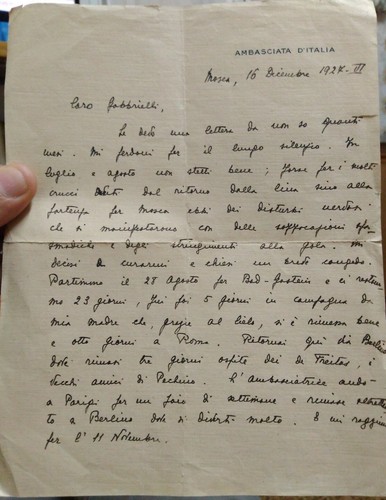 AMBASCIATA D'ITALIA
Mosca, 16 Dicembre 1924-III
Caro Gabbrielli,
Le devo una lettera da non so quanti
mesi. Mi perdoni per il lungo silenzio. In
luglio e agosto non stetti bene; forse per i molti
crucci dal ritorno dalla Cina sino alla
partenza per Mosca ebbi dei disturbi nervosi
che si manifestarono con delle soffocazioni spa
smodiche e degli stringimenti alla gola. Mi
decisi a curarmi e chiesi un breve congedo.
Partimmo il 28 agosto per Bad-Gastein e ci restam
mo 23 giorni, poi fui 5 giorni in campagna da
mia madre che, grazie al cielo, si è rimessa bene
e otto giorni a Roma. Ritornai qui da Berlino
dove rimasi tre giorni ospite dei de Freitas, i
vecchi amici di Pechino. L'ambasciatrice andò
a Parigi per un paio di settimane e rimase altrettan
to a Berlino dove si divertì molto. E mi raggiunse
per l'11 Novembre.